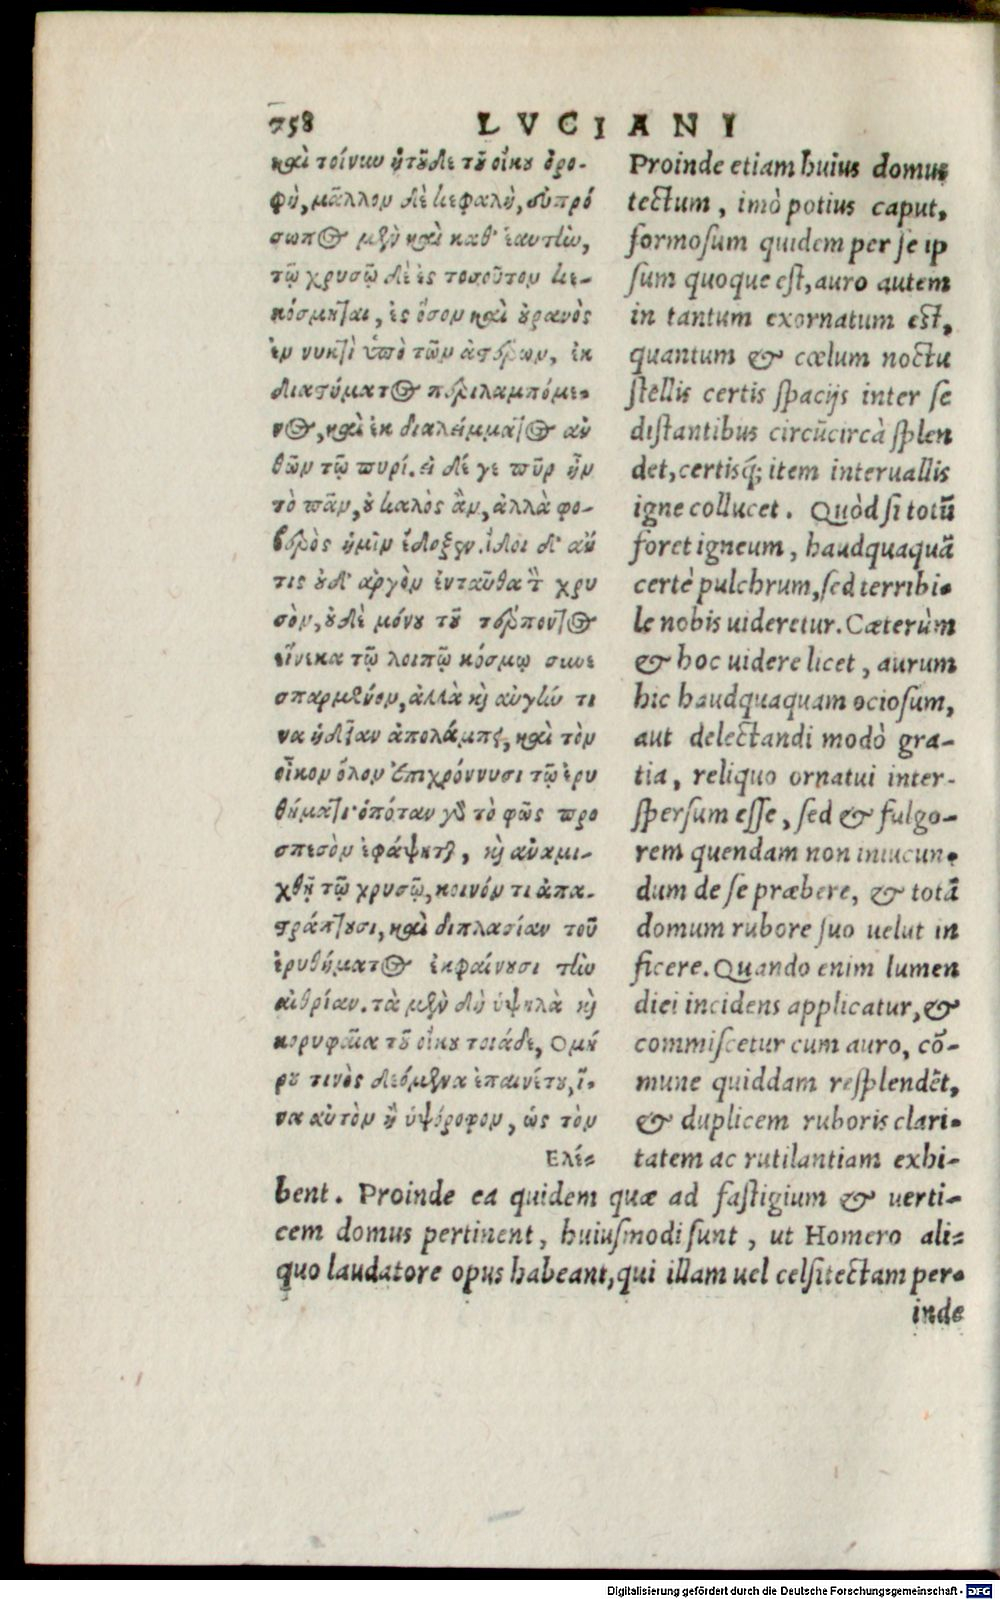 758 LVCIANI
καὶ τοίνυν ἡ τοῦδε τοῦ οἴκου ὀρο-
φὴ, μᾶλλον δὲ κεφαλὴ, εὐπρό
σωπος μὲν καὶ καθ' ἑαυτὴν,
τῷ χρυσῷ δὲ ἐς τοσοῦτον κε-
κόσμηται, ἐς ὅσον καὶ οὐρανὸς
ἐν νυκτὶ ὑπὸ τῶν ἀστέρων, ἐκ
διαστύματος περιλαμπόμε-
νος, καὶ ἐκ διαλείμματος ἀν
θῶν τῷ πυρί. εἰ δέ γε πῦρ ἦν
τὸ πᾶν, οὐ καλὸς ἂν, ἀλλὰ φο-
βερὸς ἡμῖν ἔδοξεν. ἴδοι δ' ἄν
τις οὐδ' ἀργὸν ἐνταῦθα τὸ χρυ
σὸν, οὐδὲ μόνου τοῦ τέρποντος
εἵνεκα τῷ λοιπῷ κόσμῳ συνε
σπαρμένον, ἀλλὰ καὶ αὐγήν τι
να ἡδεῖαν ἀπολάμπει, καὶ τὸν
οἶκον ὅλον ἐπιχρώννυσι τῷ ἐρυ
θήματι· ὁπόταν γὰρ τὸ φῶς προ
σπεσὸν ἐφάψηται, καὶ ἀναμι-
χθῇ τῷ χρυσῷ, κοινόν τι ἀπα-
στράπτουσι, καὶ διπλασίαν τοῦ
ἐρυθήματος ἐκφαίνουσι τὴν
αἰθρίαν. τὰ μὲν δὴ ὑψηλὰ καὶ
κορυφαῖα τοῦ οἴκου τοιάδε, Ομή
ρου τινὸς δεόμενα ἐπαινέτου, ἵ-
να αὐτὸν ἢ ὑψόροφον, ὡς τὸν
Ελέ-
Proinde etiam huius domus
tectum, imò potius caput,
formosum quidem per se ip
sum quoque est, auro autem
in tantum exornatum est,
quantum & cœlum noctu
stellis certis spacijs inter se
distantibus circũcircà splen
det, certisq́; item interuallis
igne collucet. Quòd si totũ
foret igneum, haudquaquã
certè pulchrum, sed terribi-
le nobis uideretur. Cæterùm
& hoc uidere licet, aurum
hic haudquaquam ociosum,
aut delectandi modò gra-
tia, reliquo ornatui inter-
spersum esse, sed & fulgo-
rem quendam non iniucun-
dum de se præbere, & totã
domum rubore suo uelut in
ficere. Quando enim lumen
diei incidens applicatur, &
commiscetur cum auro, cõ-
mune quiddam resplendẽt,
& duplicem ruboris clari-
tatem ac rutilantiam exhi-
bent. Proinde ea quidem quæ ad fastigium & uerti-
cem domus pertinent, huiusmodi sunt, ut Homero ali-
quo laudatore opus habeant, qui illam uel celsitectam per-
inde
Digitalisierung gefördert durch die Deutsche Forschungsgemeinschaft - DFG